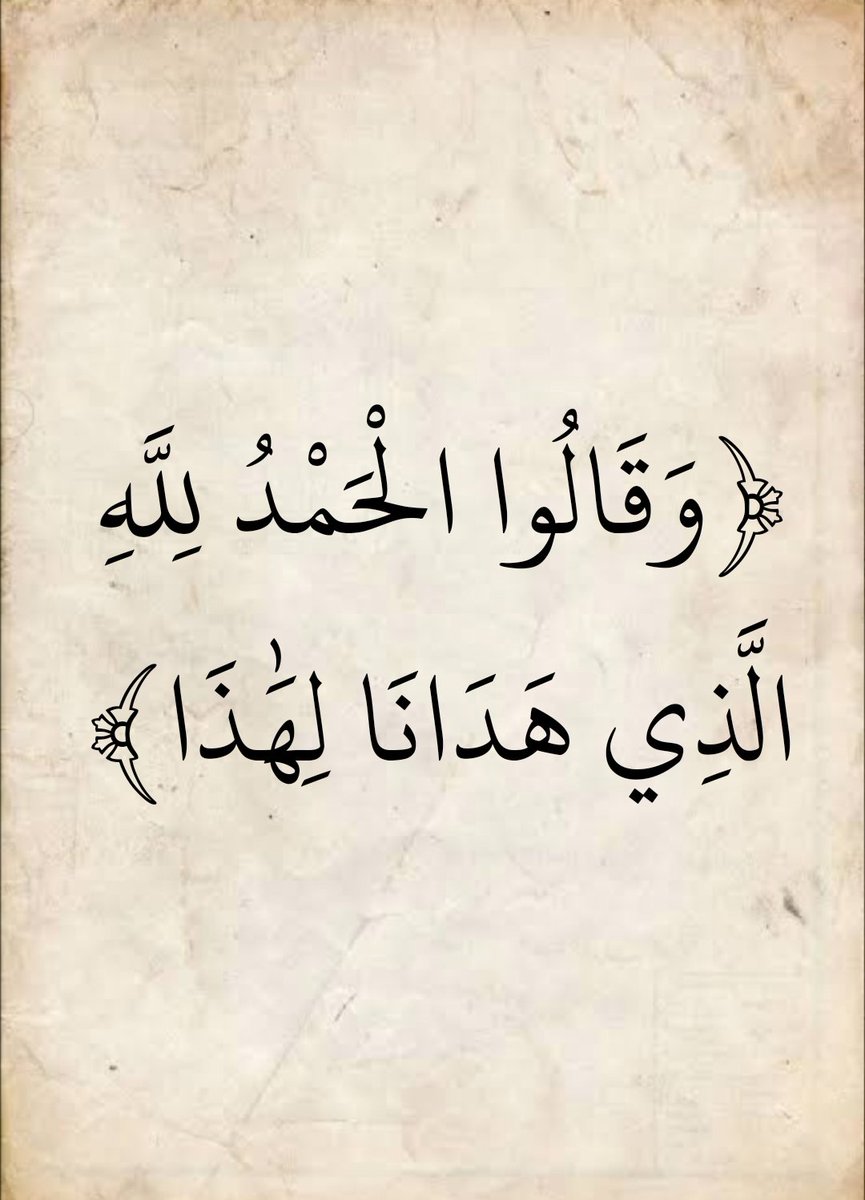 ﴿وَقَالُوا الْحَمْدُ لِلَّهِ
الَّذِي هَدَانَا لِهَٰذَا﴾